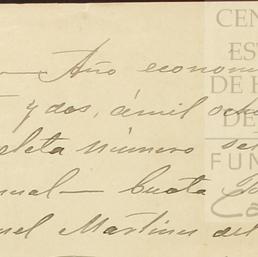 Año econom
y dos, á mil och
leta número se
nual — Cuota
uel Martines del
CEN
ES
DE H
DE
FUN